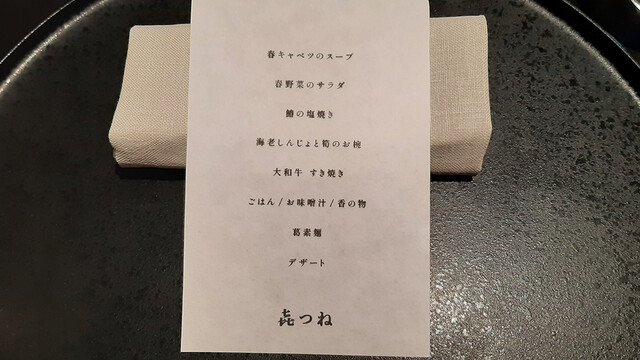 春キャベツのスープ
春野菜のサラダ
鰆の塩焼き
海老しんじょと筍のお椀
大和牛 すき焼き
ごはん / お味噌汁 / 香の物
葛素麺
デザート
㐂つね